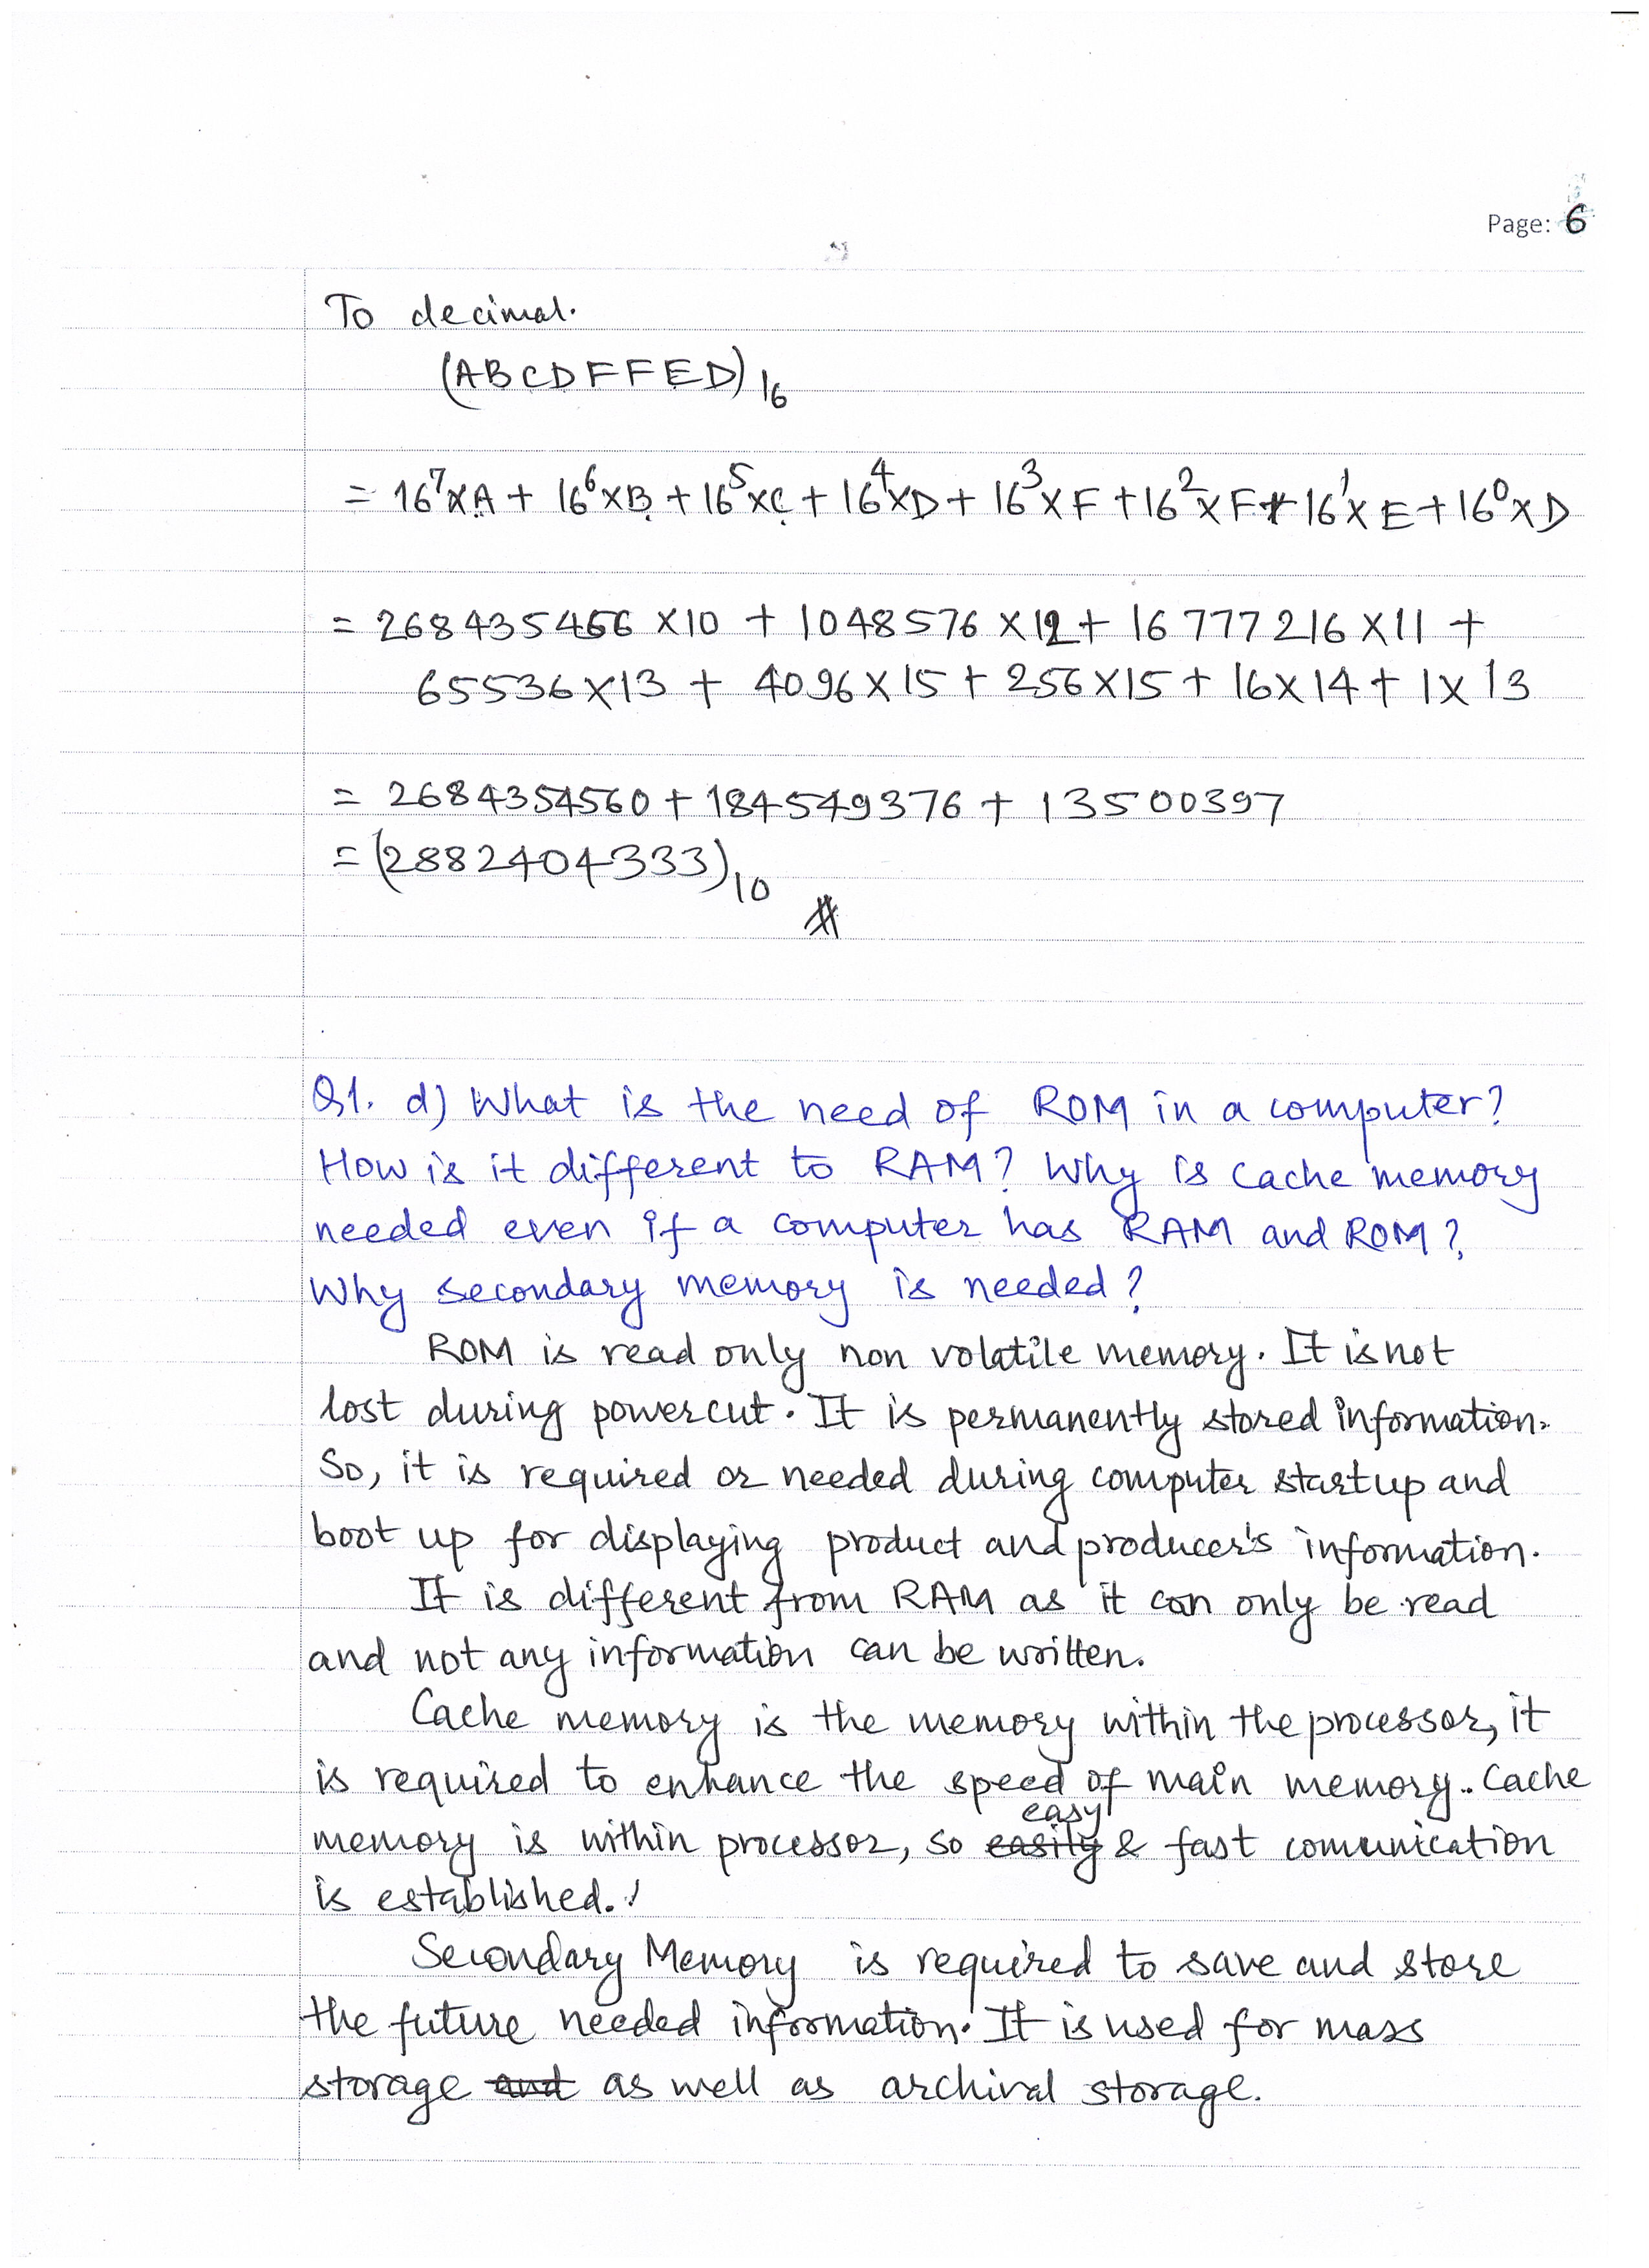 Page: 6
To decimal.
(ABCDFFED)₁₆
= 16⁷xA + 16⁶xB + 16⁵xC + 16⁴xD + 16³xF + 16²xF + 16¹xE + 16⁰xD
= 268435456 x10 + 1048576 x12 + 16777216 x11 +
65536x13 + 4096x15 + 256x15 + 16x14 + 1x13
= 2684354560 + 184549376 + 13500397
= (2882404333)₁₀
#
Q1. d) What is the need of ROM in a computer?
How is it different to RAM? Why is cache memory
needed even if a computer has RAM and ROM?
Why secondary memory is needed?
ROM is read only non volatile memory. It is not
lost during powercut. It is permanently stored information.
So, it is required or needed during computer startup and
boot up for displaying product and producer's information.
It is different from RAM as it can only be read
and not any information can be written.
Cache memory is the memory within the processor, it
is required to enhance the speed of main memory. Cache
memory is within processor, so easily easy & fast comunication
is established.
Secondary Memory is required to save and store
the future needed information. It is used for mass
storage and as well as archival storage.